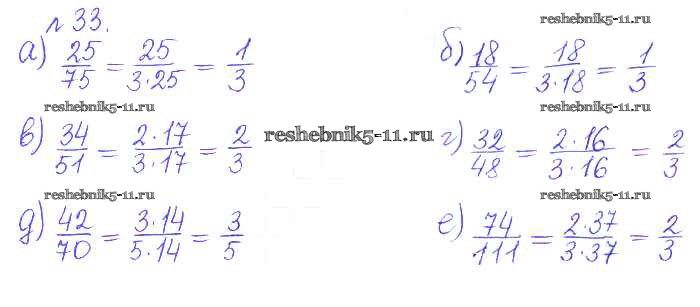 № 33.
reshebnik5-11.ru
а) 25/75 = 25/3·25 = 1/3
б) 18/54 = 18/3·18 = 1/3
reshebnik5-11.ru
reshebnik5-11.ru
в) 34/51 = 2·17/3·17 = 2/3
reshebnik5-11.ru
г) 32/48 = 2·16/3·16 = 2/3
reshebnik5-11.ru
reshebnik5-11.ru
д) 42/70 = 3·14/5·14 = 3/5
е) 74/111 = 2·37/3·37 = 2/3